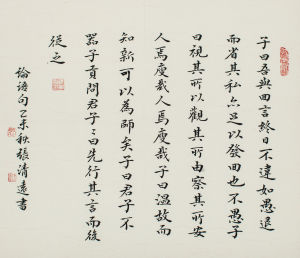 子曰吾與回言終日不違如愚退
而省其私亦足以發回也不愚子
曰視其所以觀其所由察其所安
人焉廋哉人焉廋哉子曰溫故而
知新可以為師矣子曰君子不
器子貢問君子〻曰先行其言而後
從之
論語句乙未秋張清遠書